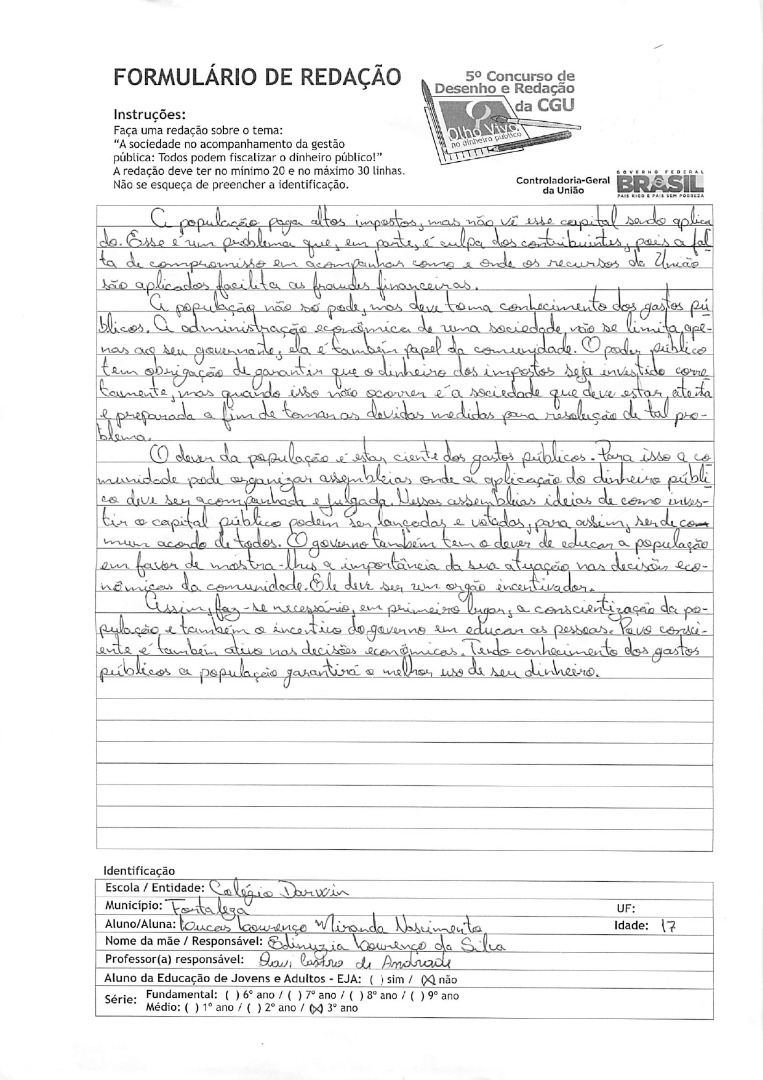 FORMULÁRIO DE REDAÇÃO
5º Concurso de
Desenho e Redação
da CGU
Olho Vivo
no dinheiro público
Instruções:
Faça uma redação sobre o tema:
"A sociedade no acompanhamento da gestão
pública: Todos podem fiscalizar o dinheiro público!"
A redação deve ter no mínimo 20 e no máximo 30 linhas.
Não se esqueça de preencher a identificação.
Controladoria-Geral
da União
GOVERNO FEDERAL
BRASIL
PAÍS RICO É PAÍS SEM POBREZA
A população paga altos impostos, mas não vê esse capital sendo aplica
do. Esse é um problema que, em parte, é culpa dos contribuintes, pois a fal
ta de compromisso em acompanhar como e onde os recursos da União
são aplicados facilita as fraudes financeiras.
A população não só pode, mas deve toma conhecimento dos gastos pú
blicos. A administração econômica de uma sociedade, não se limita ape-
nas ao seu governante, ela é também papel da comunidade. O poder público
tem obrigação de garantir que o dinheiro dos impostos seja investido corre
tamente, mas quando isso não ocorrer é a sociedade que deve estar atenta
e preparada a fim de tomar as devidas medidas para resolução de tal pro-
blema.
O dever da população é estar ciente dos gastos públicos. Para isso a co
munidade pode organizar assembleias onde a aplicação do dinheiro públi
co deve ser acompanhada e julgada. Nessas assembleias ideias de como inves-
tir o capital público podem ser lançadas e votadas, para assim, ser de co
mum acordo de todos. O governo também tem o dever de educar a população
em favor de mostra-lhes a importância da sua atuação nas decisão eco-
nômicas da comunidade. Ele deve ser um orgão incentivador.
Assim, faz-se necessário, em primeiro lugar, a conscientização da po-
pulação e também o incentivo do governo em educar as pessoas. Povo consci-
ente é também ativo nas decisões econômicas. Tendo conhecimento dos gastos
públicos a população garantirá o melhor uso de seu dinheiro.
Identificação
Escola / Entidade: Colégio Darwin
Município: Fortaleza
UF:
Aluno/Aluna: Lucas Lourenço Miranda Nascimento
Idade: 17
Nome da mãe / Responsável: Edinuzia Lourenço da Silva
Professor(a) responsável: Davi Castro de Andrade
Aluno da Educação de Jovens e Adultos - EJA: ( ) sim / (X) não
Série: Fundamental: ( ) 6º ano / ( ) 7º ano / ( ) 8º ano / ( ) 9º ano
Médio: ( ) 1º ano / ( ) 2º ano / (X) 3º ano